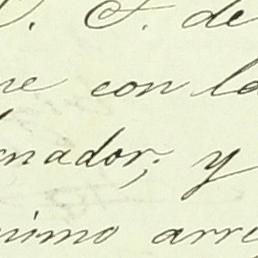 F. de
ne con la
nador; y
nimo arre